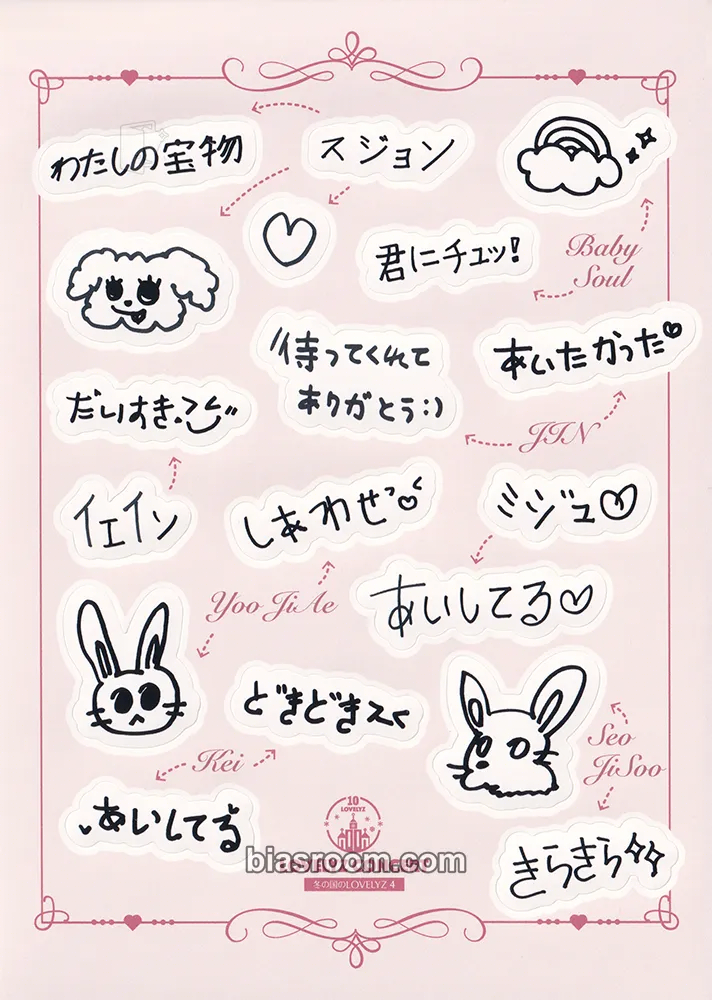 わたしの宝物
スジョン
君にチュッ!
Baby
Soul
待ってくれて
ありがとう:)
あいたかった♡
JIN
だいすき
イェイン
しあわせ
ミジュ♡
Yoo JiAe
あいしてる♡
どきどき
Seo
JiSoo
Kei
あいしてる
きらきら
10th
LOVELYZ
biasroom.com
冬の国のLOVELYZ 4